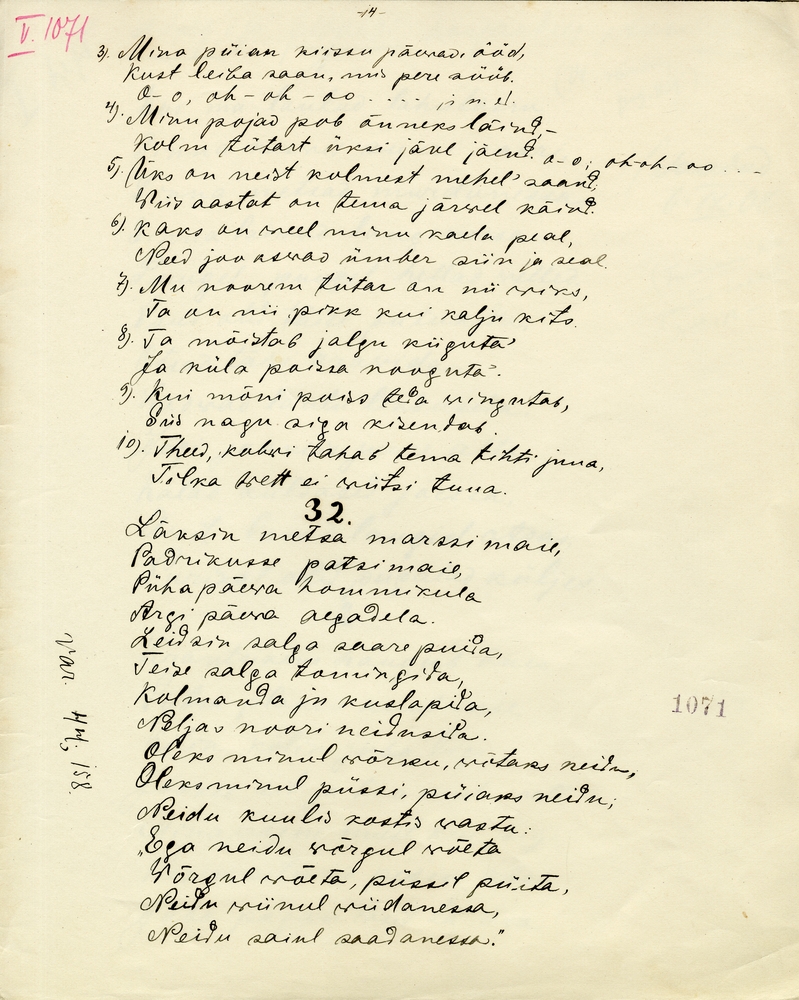 -14-
V. 1071
3). Mina püian kiissu päewad, ööd,
Kust leiba saan, mis pere sööb.
O-o, oh-oh-oo .... js n. e.
4). Minu pojad pob õnneks läind, -
Kolm tütart üksi järel jäend. o-o; oh-oh-oo ....
5). Üks on neist kolmest mehel' saand,
Wiis aastat on tema järwel käind.
6). Kaks on weel minu kaela peal,
Need joo aswad ümber siin ja seal.
7). Mu noorem tütar on nii wiks,
Ta on nii pikk kui kalju kits.
8). Ta mõistab jalgu kiiguta'
Ja küla poissa nooguta'.
9). Kui mõni poiss teda wingutab,
Siis nagu siga kisendab.
10). Theed, kohwi tahab tema tihti juua,
Tilka wett ei wiitsi tuua.
32.
Läksin metsa marssi maie,
Padrikusse patsi maie,
Püha päewa hommikula
Argi päewa aegadela.
Leidsin salga saare puida,
Teise salga tomingida,
Kolmanda jn kuslapida,
Neljas noori neidusida.
Oleks minul wõrku, wõtaks neidu,
Oleks minul püssi, püiaks neidu;
Neidu kuulis kostis wastu:
"Ega neidu wõrgul wõeta
Wõrgul wõeta, püssil püita,
Neidu wiinul wiidanessa,
Neidu saiul saadanessa."
var. 44, 158.
1071